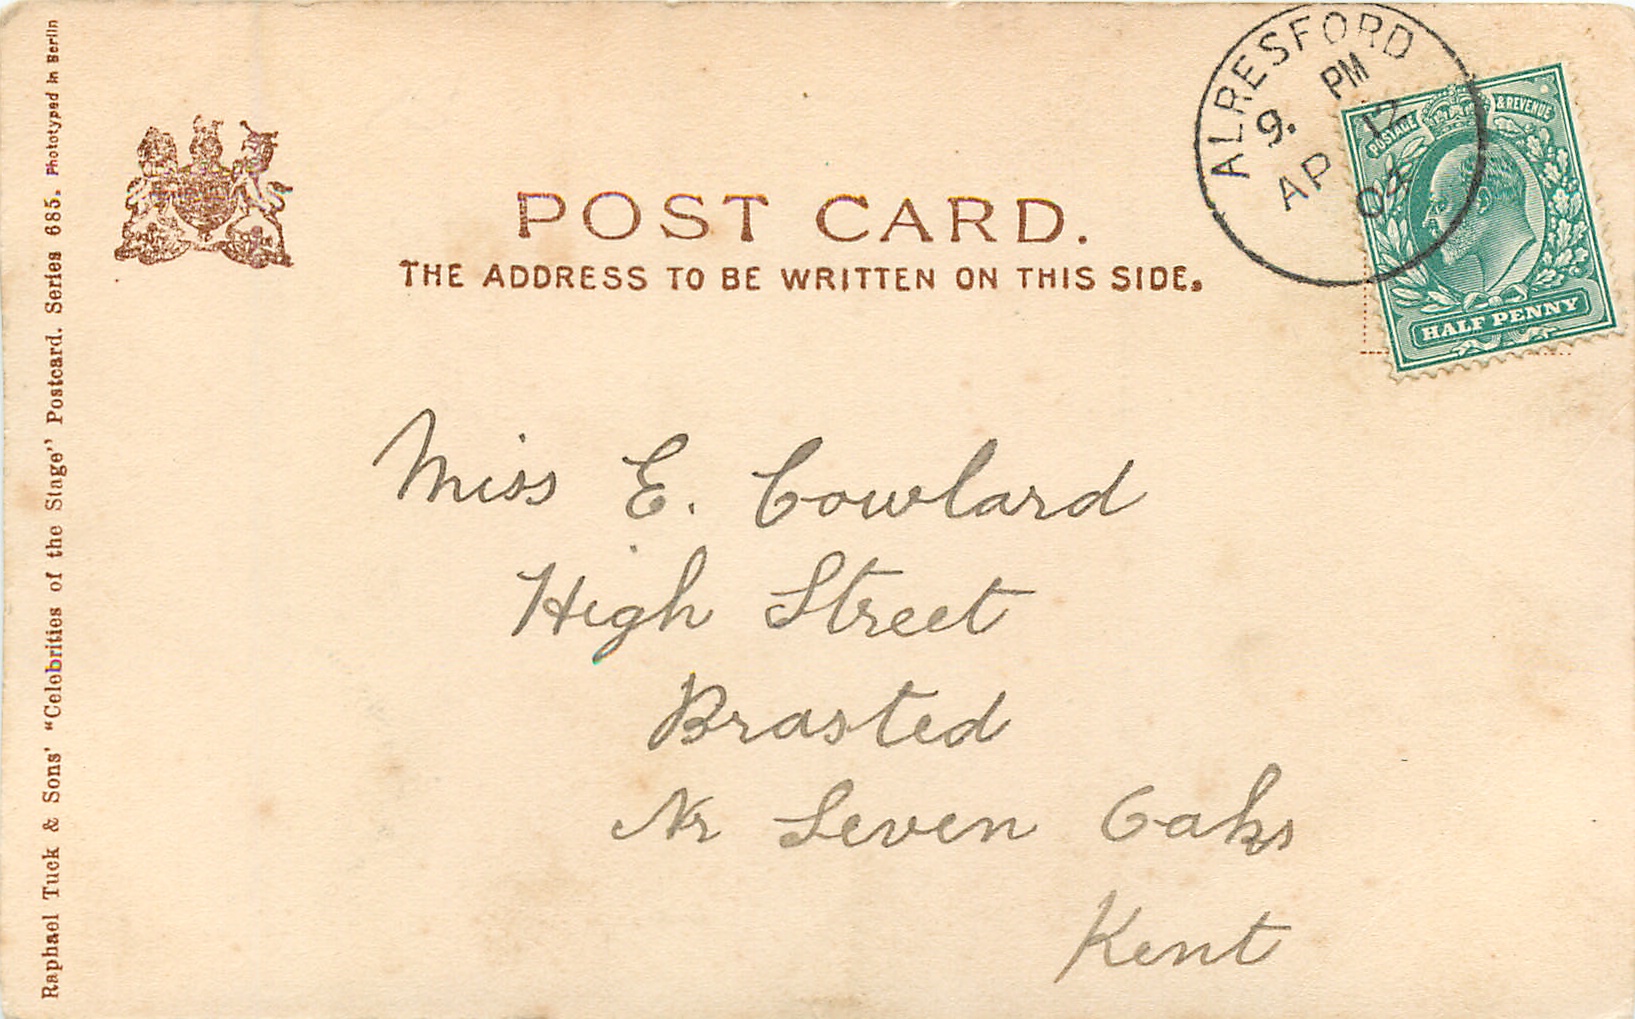 Raphael Tuck & Sons' "Celebrities of the Stage" Postcard. Series 685. Phototyped in Berlin
POST CARD.
THE ADDRESS TO BE WRITTEN ON THIS SIDE.
ALRESFORD
9. PM
AP 12
04
POSTAGE & REVENUE
HALF PENNY
Miss E. Cowlard
High Street
Brasted
Nr Seven Oaks
Kent